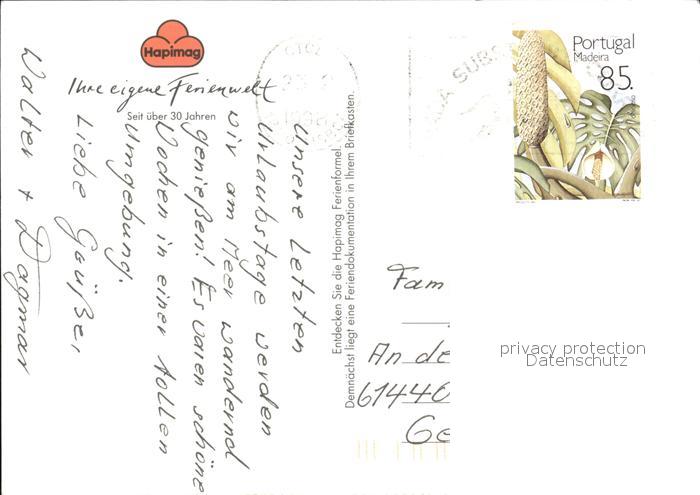 Hapimag
Ihre eigene Ferienwelt
Seit über 30 Jahren
Unsere letzten
Urlaubstage werden
wir am Meer wandernd
genießen! Es waren schöne
Wochen in einer tollen
Umgebung.
Liebe Grüße,
Walter + Dagmar
Entdecken Sie die Hapimag Ferienformel.
Demnächst liegt eine Feriendokumentation in Ihrem Briefkasten.
Portugal
Madeira
85.
Fam
An de
61440
Ge
privacy protection
Datenschutz